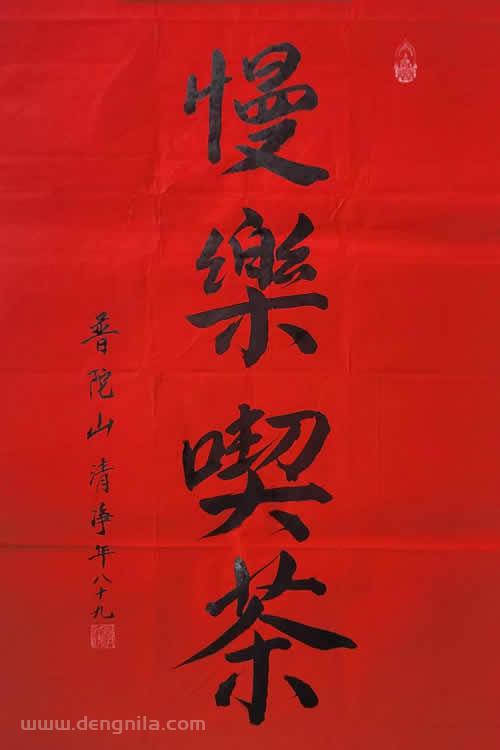 慢樂喫茶
普陀山清淨年八十九
www.dengnila.com